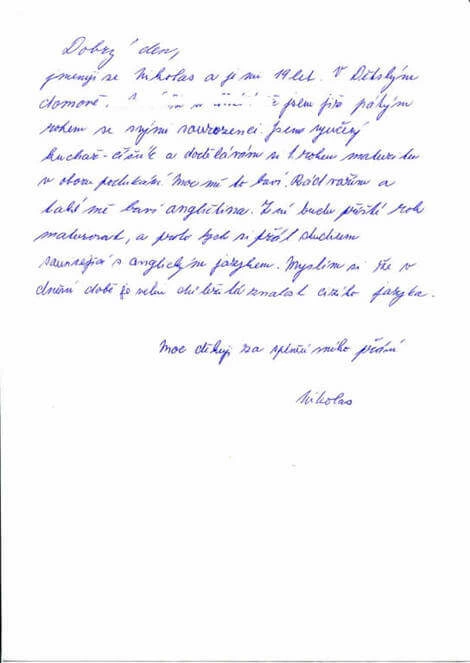 Dobrý den,
jmenuji se Nikolas a je mi 19 let. V Dětským
domově. jsem již pátým
rokem se svými sourozenci. Jsem vyučený
kuchař-číšník a dodělávám si 1. rokem maturitu
v oboru podnikání. Moc mě to baví. Rád vařím a
také mě baví angličtina. Z ní budu příští rok
maturovat, a proto bych si přál
s anglickým jazykem. Myslím si že v
dnešní době je velmi důležitá znalost cizího jazyka.
Moc děkuji za splnění mého přání
Nikolas